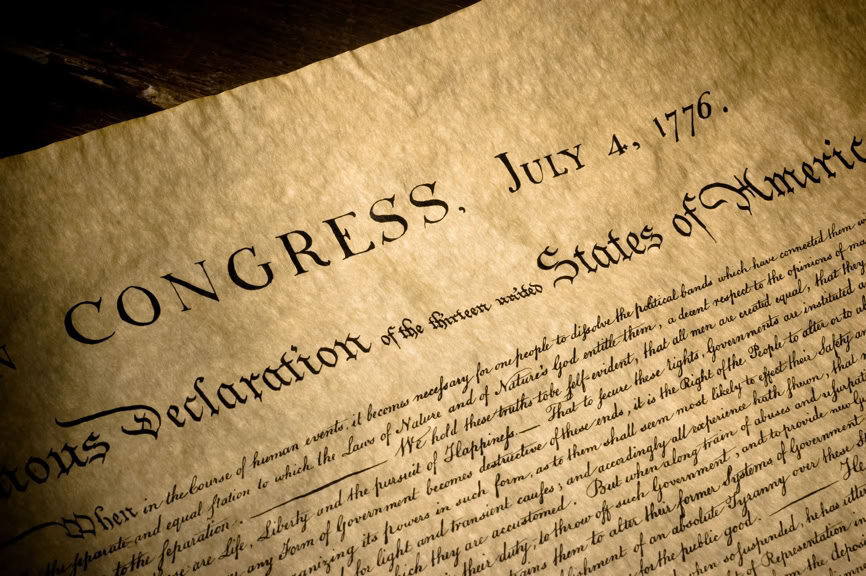 CONGRESS, JULY 4, 1776.
Declaration of the thirteen united States of Americ
When in the Course of human events, it becomes necessary for one people to dissolve the political bands which have connected them
the separate and equal station to which the Laws of Nature and of Nature's God entitle them, a decent respect to the opinions of
to the separation. We hold these truths to be self-evident, that all men are created equal, that they
are Life, Liberty and the pursuit of Happiness.— That to secure these rights, Governments are instituted
any Form of Government becomes destructive of these ends, it is the Right of the People to alter or to
its powers in such form, as to them shall seem most likely to effect their Safety
for light and transient causes; and accordingly all experience hath shewn, that
they are accustomed. But when a long train of abuses and
their duty, to throw off such Government, and to provide new
to alter their former Systems of Government
of an absolute Tyranny over these
for the public good.
when so suspended, he has
of Representation